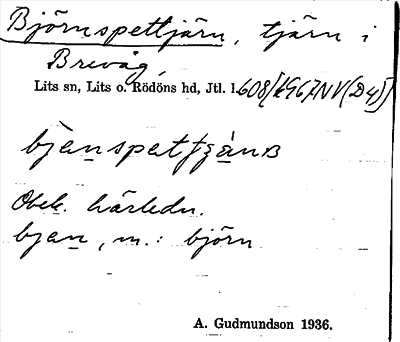 Björnspettjärn, tjärn i
Brevåg,
Lits sn, Lits o. Rödöns hd, Jtl. l.
bjenspettjänB
Obek. härledn.
bjen, m.: björn
A. Gudmundson 1936.